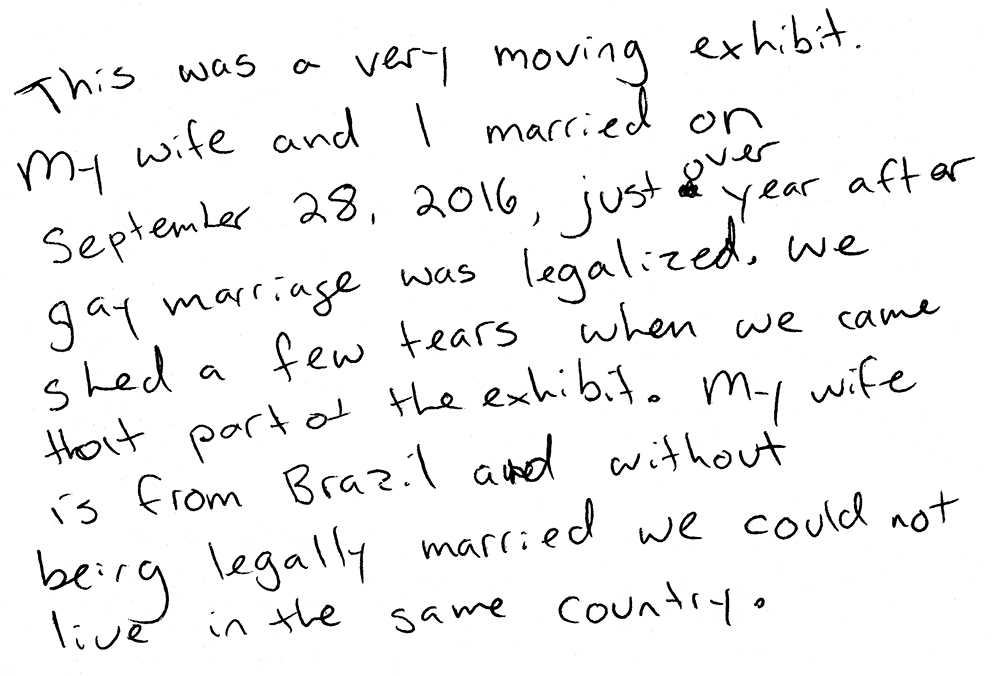 This was a very moving exhibit.
My wife and I married on
September 28, 2016, just over year after
gay marriage was legalized. We
shed a few tears when we came
that part of the exhibit. My wife
is from Brazil and without
being legally married we could not
live in the same country.